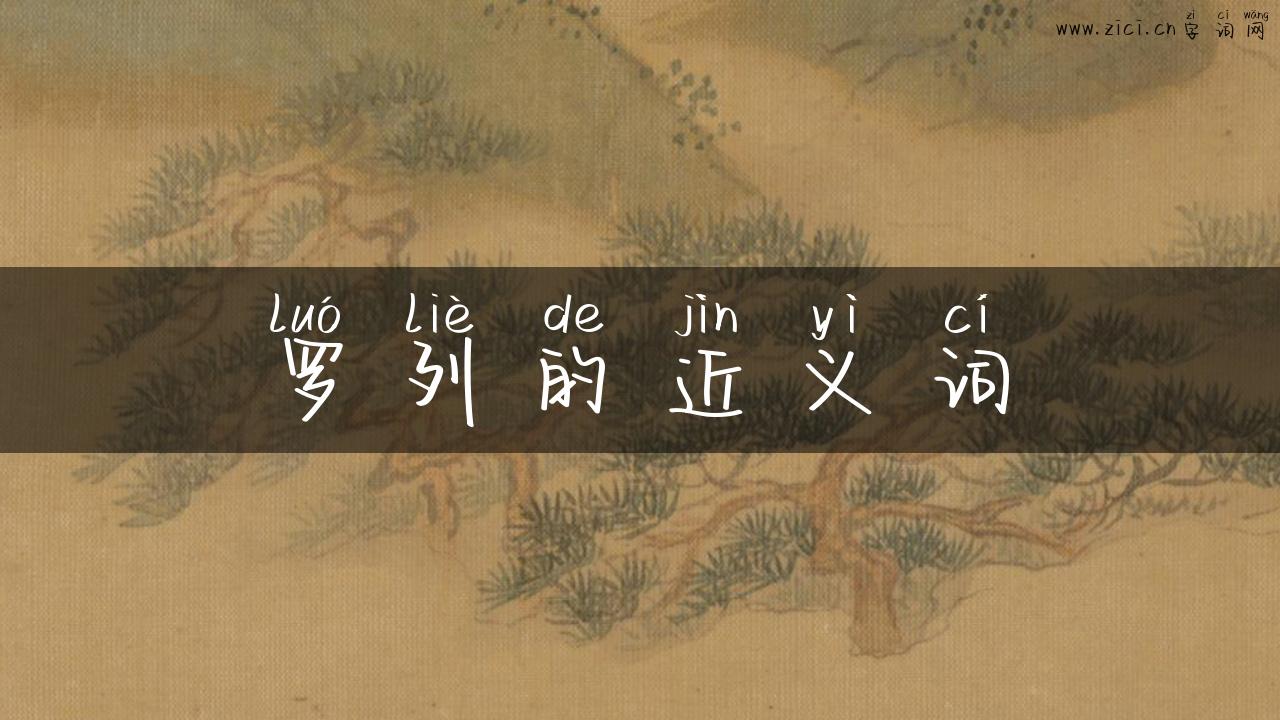 zì cí wǎng
www.zici.cn 字词网
luó liè de jìn yì cí
罗列的近义词